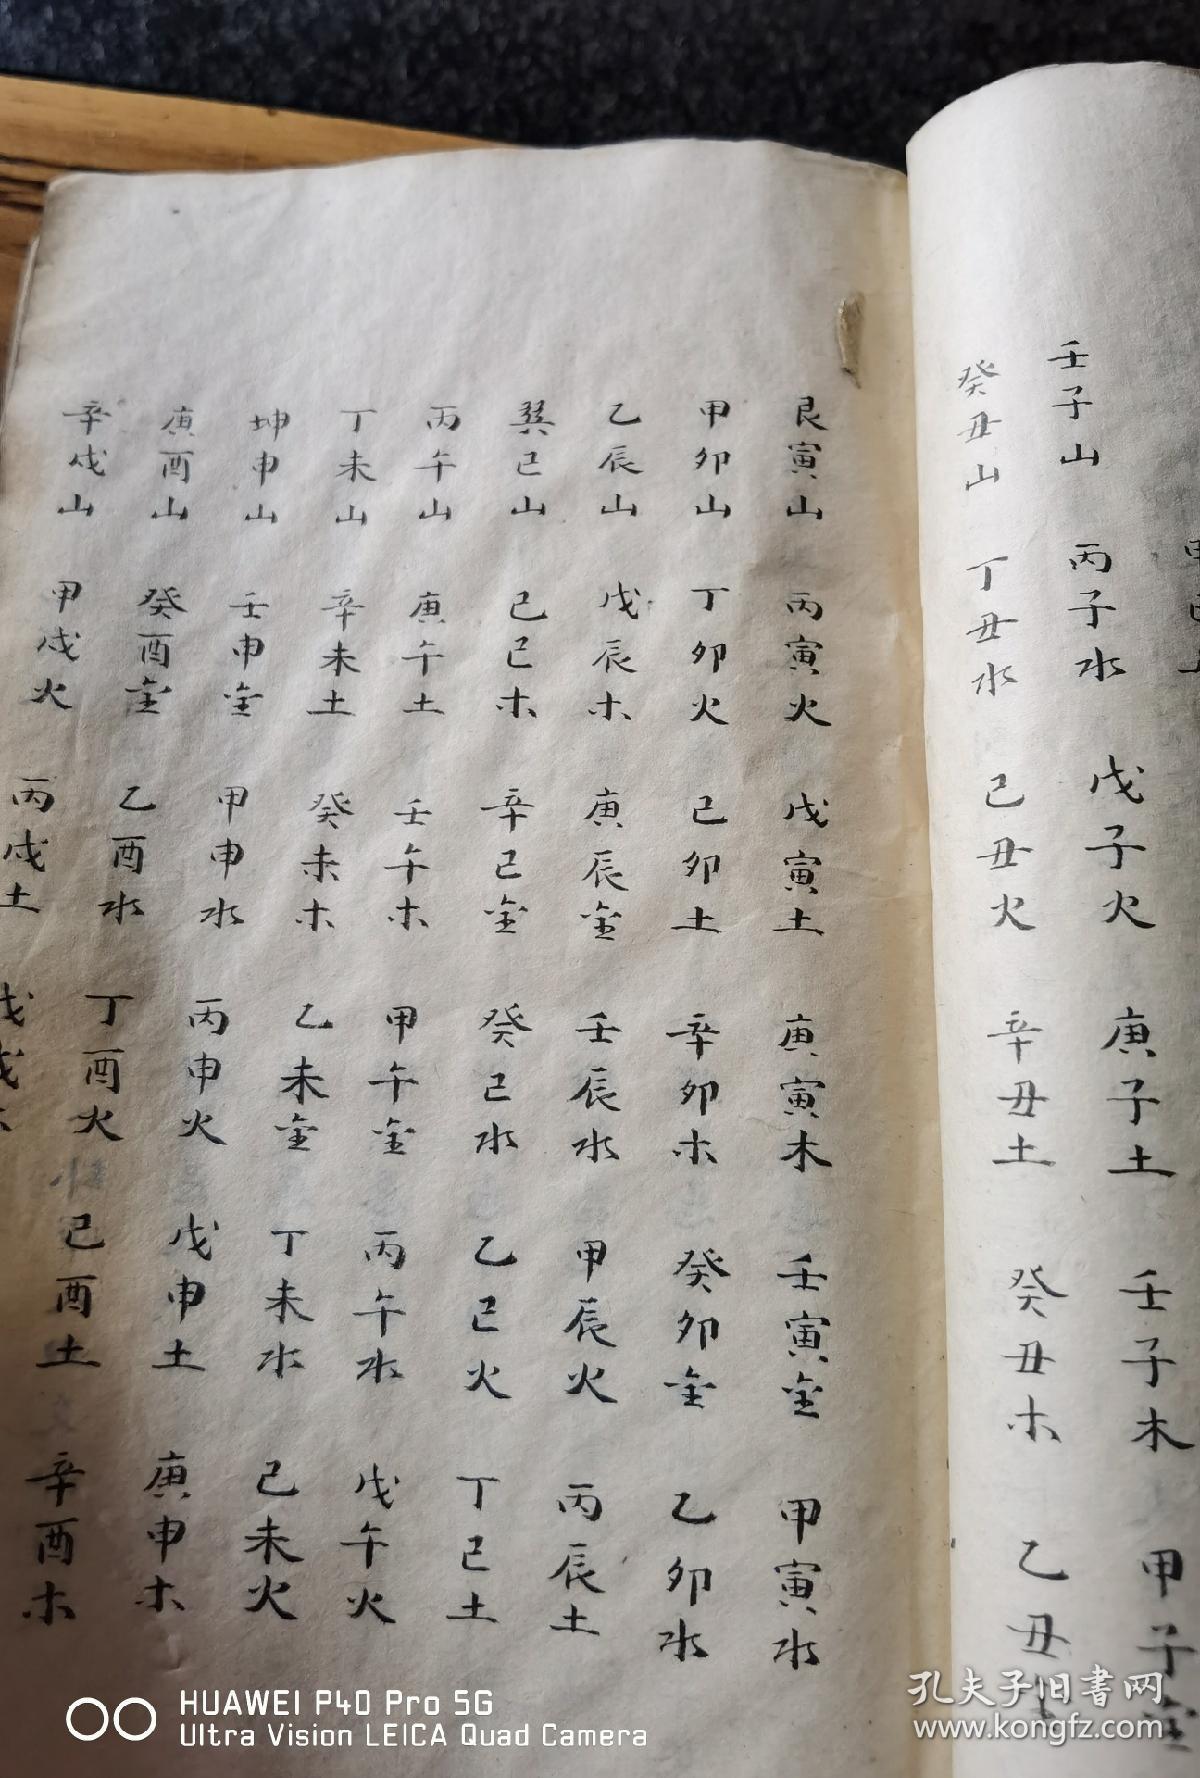 壬子山 丙子水 戊子火 庚子土 壬子木 甲子金
癸丑山 丁丑水 己丑火 辛丑土 癸丑木 乙丑
艮寅山 丙寅火 戊寅土 庚寅木 壬寅金 甲寅水
甲卯山 丁卯火 己卯土 辛卯木 癸卯金 乙卯水
乙辰山 戊辰木 庚辰金 壬辰水 甲辰火 丙辰土
巽巳山 己巳木 辛巳金 癸巳水 乙巳火 丁巳土
丙午山 庚午土 壬午木 甲午金 丙午水 戊午火
丁未山 辛未土 癸未木 乙未金 丁未水 己未火
坤申山 壬申金 甲申水 丙申火 戊申土 庚申木
庚酉山 癸酉金 乙酉水 丁酉火 己酉土 辛酉木
辛戌山 甲戌火 丙戌土 戊戌
HUAWEI P40 Pro 5G
Ultra Vision LEICA Quad Camera
孔夫子旧书网
www.kongfz.com